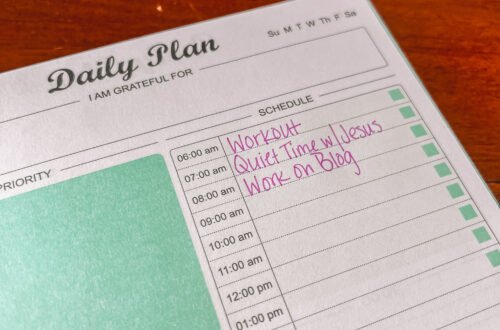 Daily Plan
Su M T W Th F Sa
I AM GRATEFUL FOR
PRIORITY
SCHEDULE
06:00 am Workout
07:00 am Quiet Time w/Jesus
08:00 am Work on Blog
09:00 am
10:00 am
11:00 am
12:00 pm
01:00 pm